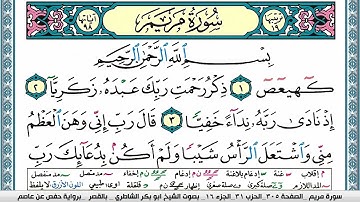 سورة مريم
بِسْمِ اللَّهِ الرَّحْمَٰنِ الرَّحِيمِ
كٓهيعٓصٓ ١ ذِكْرُ رَحْمَتِ رَبِّكَ عَبْدَهُۥ زَكَرِيَّآ ٢
إِذْ نَادَىٰ رَبَّهُۥ نِدَآءً خَفِيًّا ٣ قَالَ رَبِّ إِنِّى وَهَنَ ٱلْعَظْمُ
مِنِّى وَٱشْتَعَلَ ٱلرَّأْسُ شَيْبًا وَلَمْ أَكُنۢ بِدُعَآئِكَ رَبِّ
سورة مريم - الصفحة ٣٠٥ - الحزب ٣١ - الجزء ١٦ - بصوت الشيخ أبو بكر الشاطري - بالقصر - برواية حفص عن عاصم